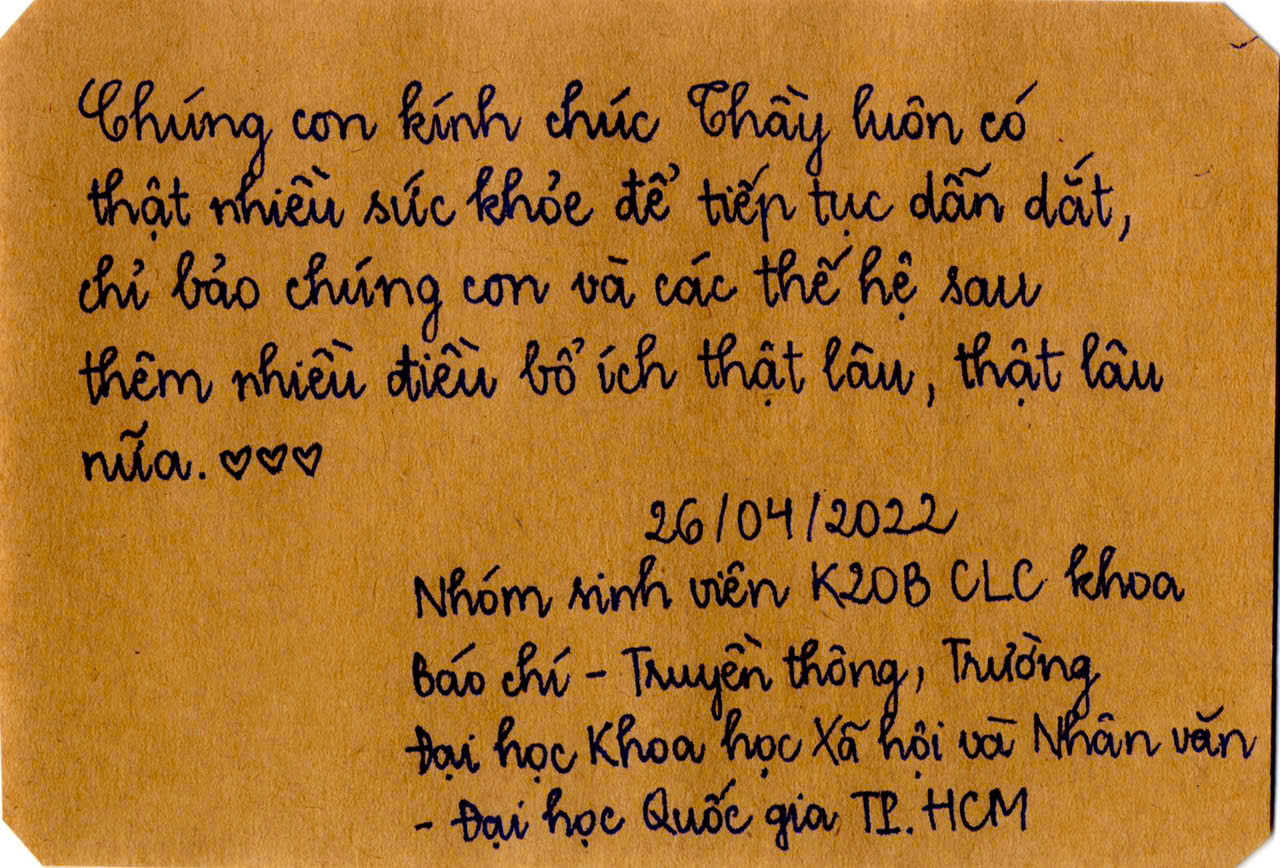 Chúng con kính chúc Thầy luôn có
thật nhiều sức khỏe để tiếp tục dẫn dắt,
chỉ bảo chúng con và các thế hệ sau
thêm nhiều điều bổ ích thật lâu, thật lâu
nữa. ♡♡♡
26/04/2022
Nhóm sinh viên K20B CLC khoa
Báo chí - Truyền thông, Trường
Đại học Khoa học Xã hội và Nhân văn
- Đại học Quốc gia TP. HCM